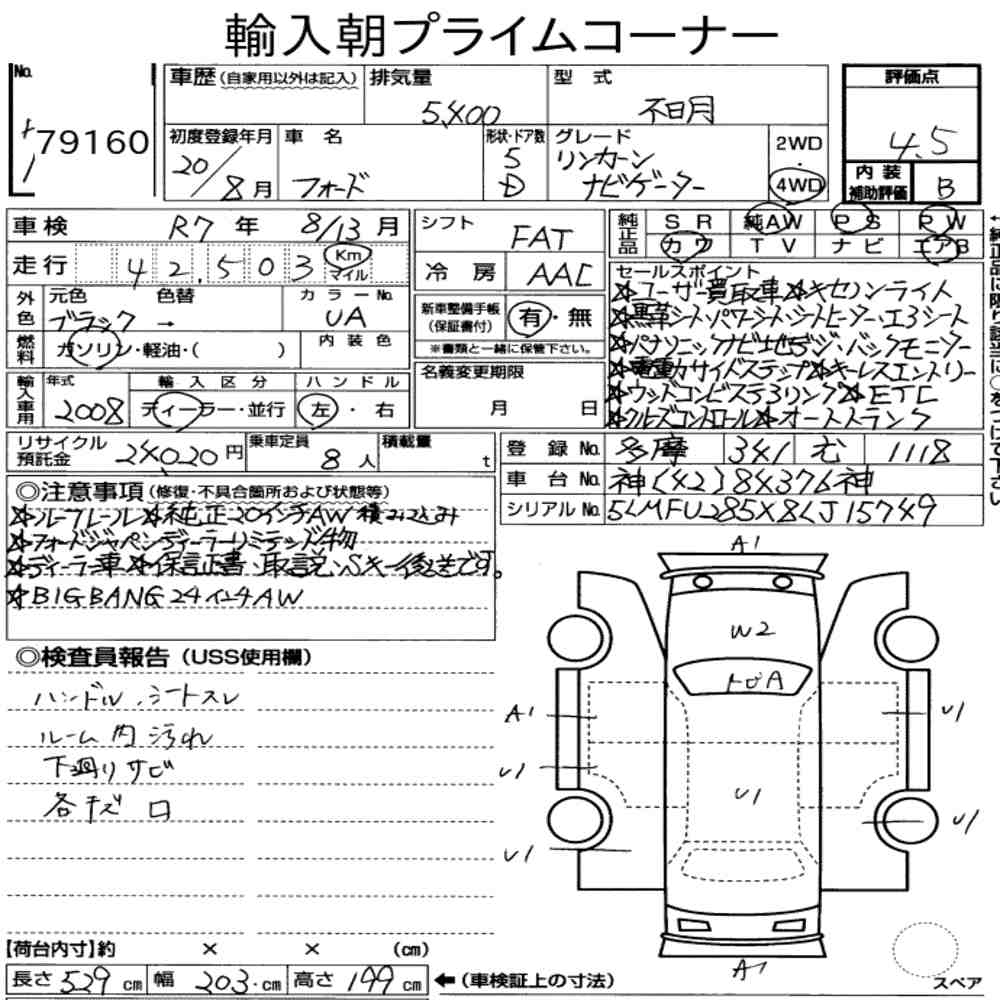 輸入朝プライムコーナー
No.
79160
車歴(自家用以外は記入)
排気量
5,400
型 式
不明
評価点
4.5
内装補助評価
B
初度登録年月
20/8月
車 名
フォード
形状・ドア数
5
D
グレード
リンカーン
ナビゲーター
2WD
・
4WD
車検 R7 年 8/13 月
走行 42,503 Km マイル
シフト FAT
冷 房 AAC
純正品
SR 純AW PS PW
カワ TV ナビ エアB
外色
元色 色替 カラーNo.
ブラック → UA
燃料
ガソリン・軽油・( )
内 装 色
新車整備手帳(保証書付)
有・無
※書類と一緒に保管下さい。
名義変更期限
月 日
セールスポイント
☆ユーザー買取車☆キセノンライト
☆黒革シート・パワーシート・シートヒーター・エアシート
☆パナソニックナビ地デジ・バックモニター
☆電動サイドステップ☆キーレスエントリー
☆ウッドコンビステアリング☆ETC
☆クルーズコントロール☆オートステップ
輸入車用
年式
2008
輸 入 区 分
ディーラー・並行
ハ ン ド ル
左・右
リサイクル預託金 24020円
乗車定員 8人
積載量 t
登 録 No. 多摩 341 1118
車 台 No. 神(42)84376神
シリアルNo. 5LMFU285X8LJ15749
◎注意事項(修復・不具合箇所および状態等)
☆ルーフレール☆純正20インチAW積み込み
☆フォードジャパンディーラーリミテッド物
☆ディーラー車☆保証書、取説、Sキー後送です。
☆BIGBANG24インチAW
◎検査員報告(USS使用欄)
ハンドル、シートスレ
ルーム内汚れ
下廻りサビ
各キズ
A1
W2
トビA
A1
U1
U1
U1
U1
U1
A1
【荷台内寸】約 × × (cm)
長さ 529 cm 幅 203 cm 高さ 199 cm ←(車検証上の寸法)
スペア